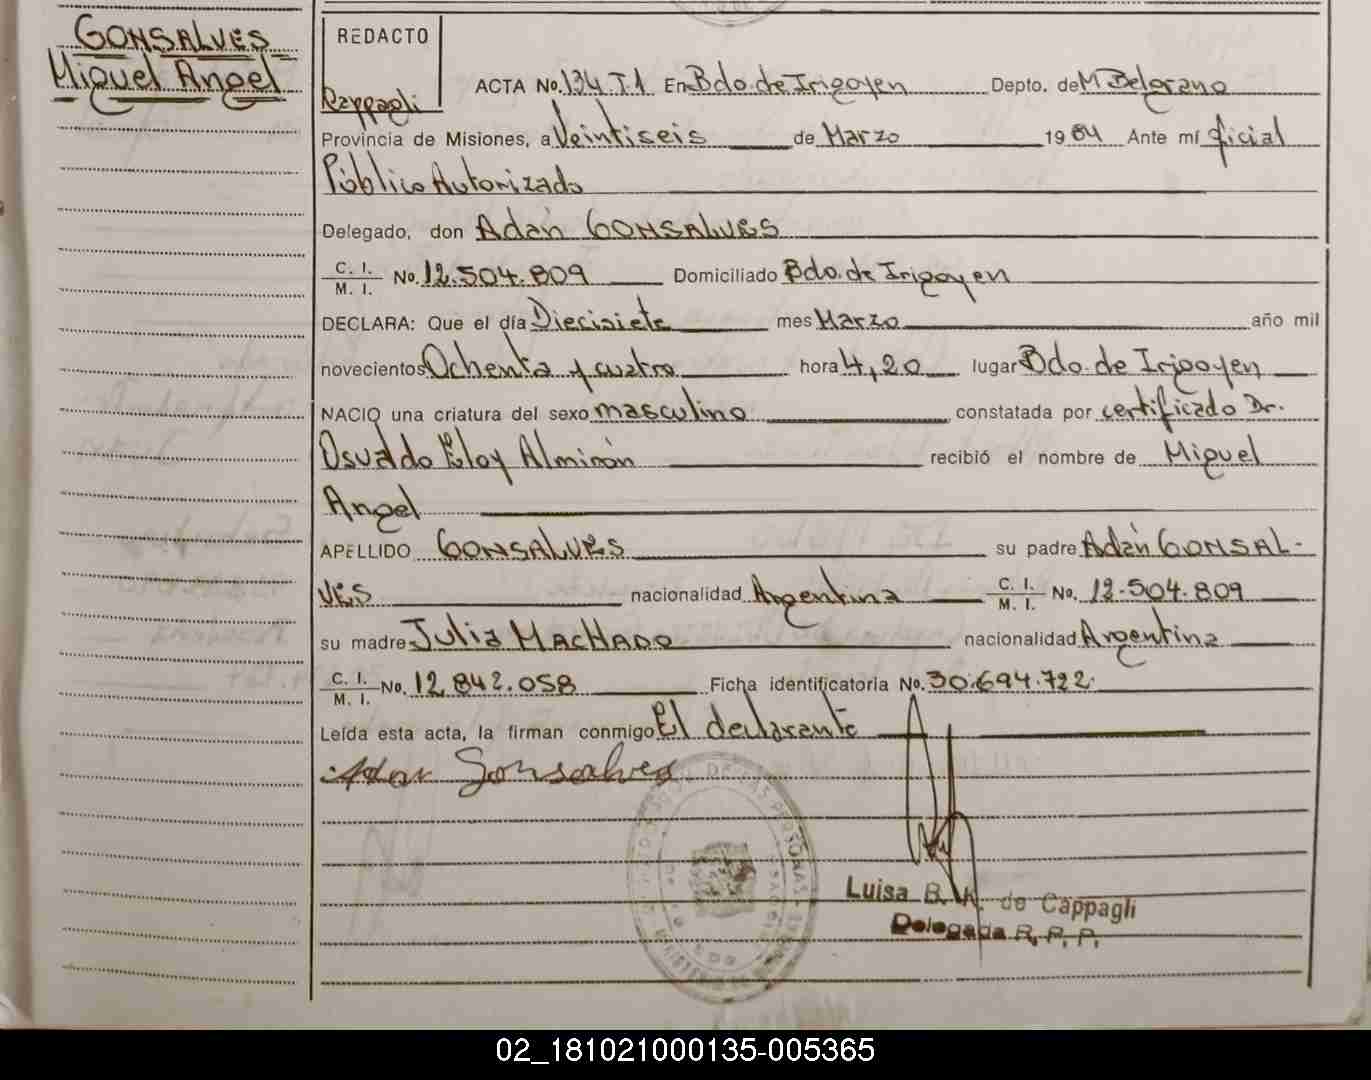 GONSALVES
Miguel Angel
REDACTO
Cappagli
ACTA No. 134.T.1 En Bdo. de Irigoyen Depto. de M Belgrano
Provincia de Misiones, a Veintiseis de Marzo 1984 Ante mí oficial
Público Autorizado
Delegado, don Adán GONSALVES
C. I. M. I. No. 12.504.809 Domiciliado Bdo. de Irigoyen
DECLARA: Que el día Diecisiete mes Marzo año mil
novecientos Ochenta y cuatro hora 4,20 lugar Bdo. de Irigoyen
NACIO una criatura del sexo masculino constatada por certificado Dr.
Osvaldo Eloy Almirón recibió el nombre de Miguel
Angel
APELLIDO GONSALVES su padre Adán GONSAL-
VES nacionalidad Argentina C. I. M. I. No. 12.504.809
su madre Julia MACHADO nacionalidad Argentina
C. I. M. I. No. 12.842.058 Ficha identificatoria No. 30.694.722
Leída esta acta, la firman conmigo El declarante
Adan Gonsalves
DE LAS PERSONAS
Luisa B. de Cappagli
Delegada R. P. P.
02_181021000135-005365